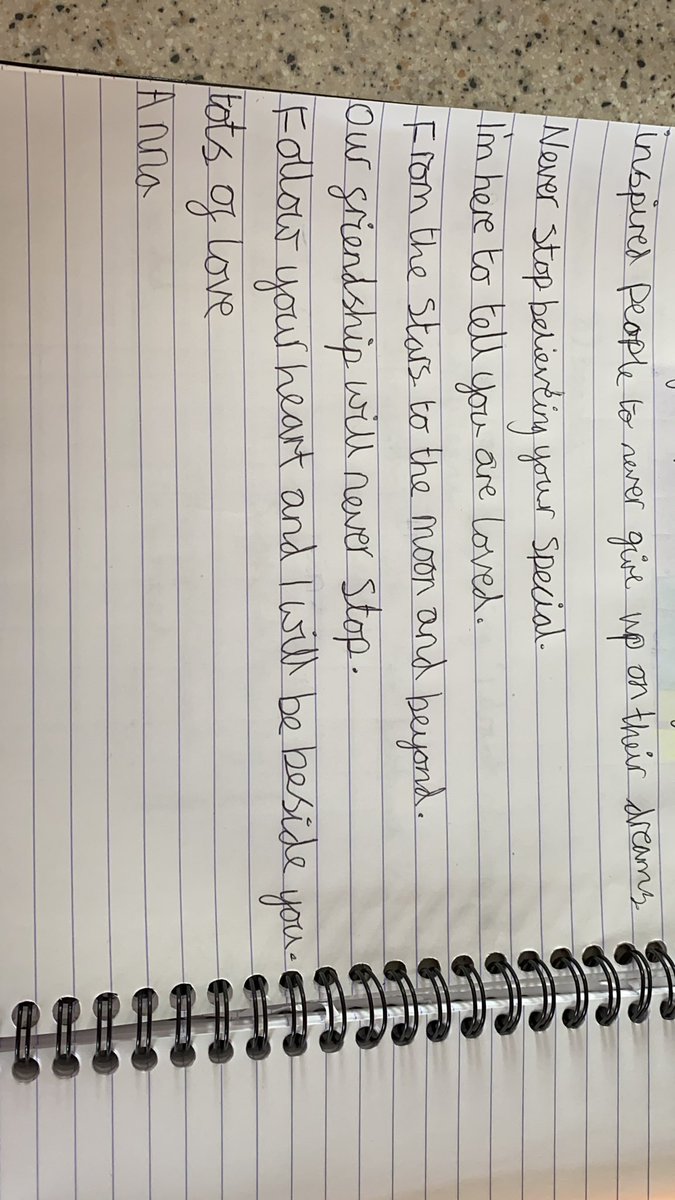 inspired people to never give up on their dreams
Never stop believing your special.
I'm here to tell you are loved.
From the stars to the moon and beyond.
Our friendship will never stop.
Follow your heart and I will be beside you.
Lots of love
Anna